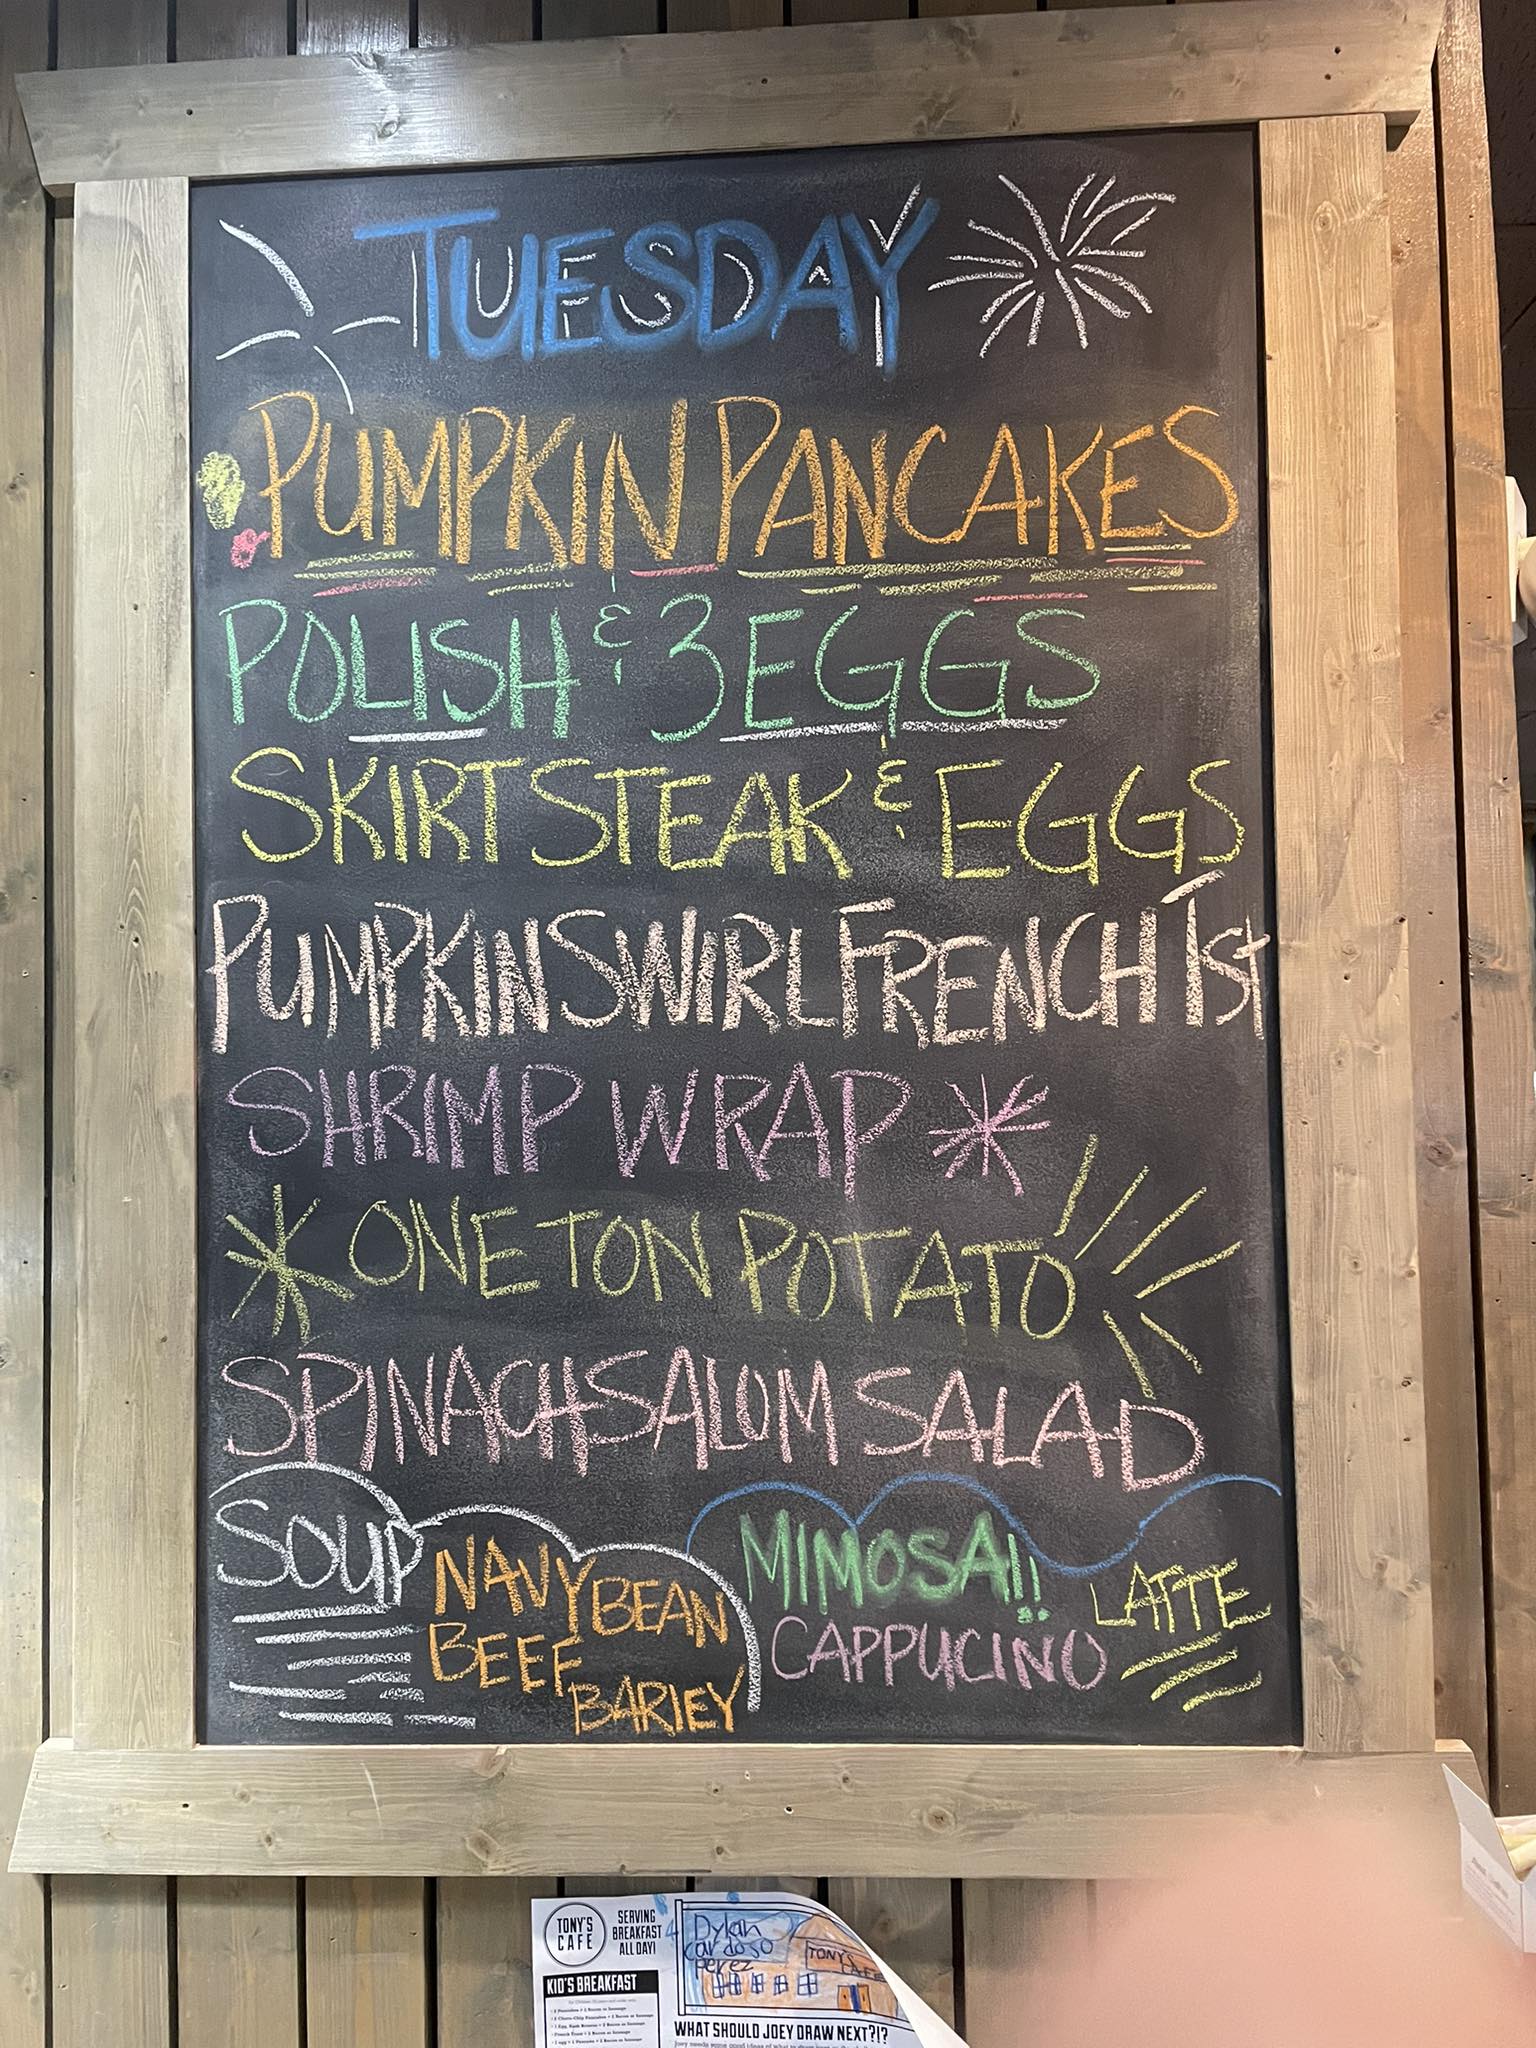 TUESDAY
PUMPKIN PANCAKES
POLISH & 3 EGGS
SKIRT STEAK & EGGS
PUMPKIN SWIRL FRENCH Tst
SHRIMP WRAP
ONE TON POTATO
SPINACH SALUM SALAD
SOUP
NAVY BEAN
BEEF
BARLEY
MIMOSA!!
CAPPUCINO
LATTE
TONY'S
CAFE
SERVING
BREAKFAST
ALL DAY!
KID'S BREAKFAST
Dylan
cardoso
perez
TONYS
CAFE
WHAT SHOULD JOEY DRAW NEXT?!?